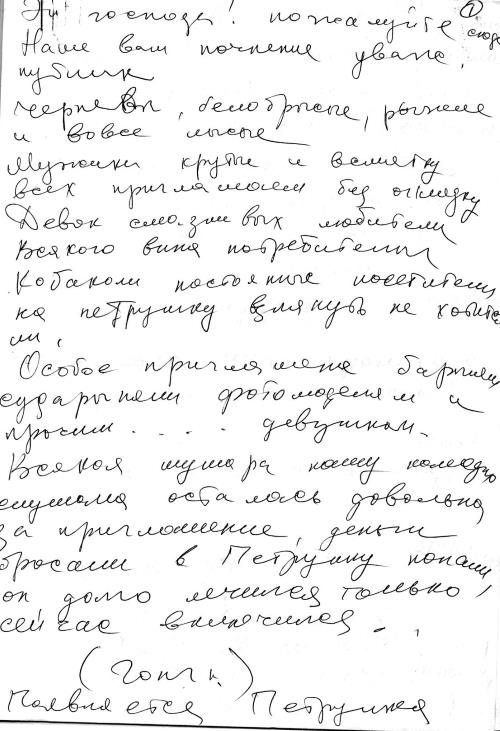 Эй господа! пожалуйте сюда
①
Наше вам почтение уваж.
публик
чернявы, белобрысые, рыжие
и вовсе лысые
Мужики крутые и всмятку
всех приглашаем без оглядку
Девок смазливых любители
Всякого вина потребители
Кобаков постоянные посетители
на петрушку взглянуть не хотите
ли,
Особое приглашение барышням
сударыням фотомоделям и
прочим . . . . девушкам.
Всякая шушара нашу комедию
слушала осталась довольна
за приглашение, деньги
бросали в Петрушку попали
он долго лечился только
сейчас включился . . .
(          )
Появляется Петрушка